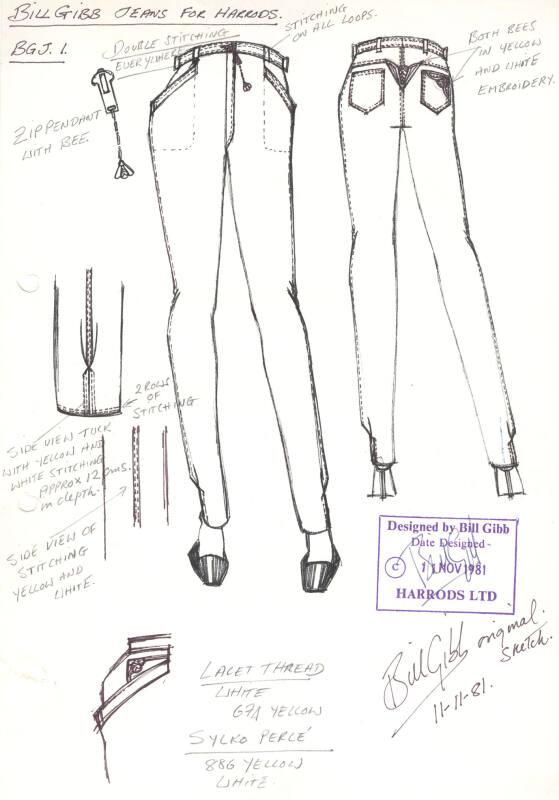 BILL GIBB JEANS FOR HARRODS.
BGJ. 1.
DOUBLE STITCHING
EVERYWHERE
STITCHING
ON ALL LOOPS.
BOTH BEES
IN YELLOW
AND WHITE
EMBROIDERY.
ZIPPENDANT
WITH BEE.
2 ROWS
OF
STITCHING
SIDE VIEW TUCK
WITH YELLOW AND
WHITE STITCHING
APPROX 12 cms.
in depth.
SIDE VIEW OF
STITCHING
YELLOW AND
WHITE.
Designed by Bill Gibb
Date Designed -
C
11 NOV 1981
HARRODS LTD
Bill Gibb original.
Sketch.
11-11-81.
LACET THREAD
WHITE
67A YELLOW
SYLKO PERLÉ
886 YELLOW
WHITE.